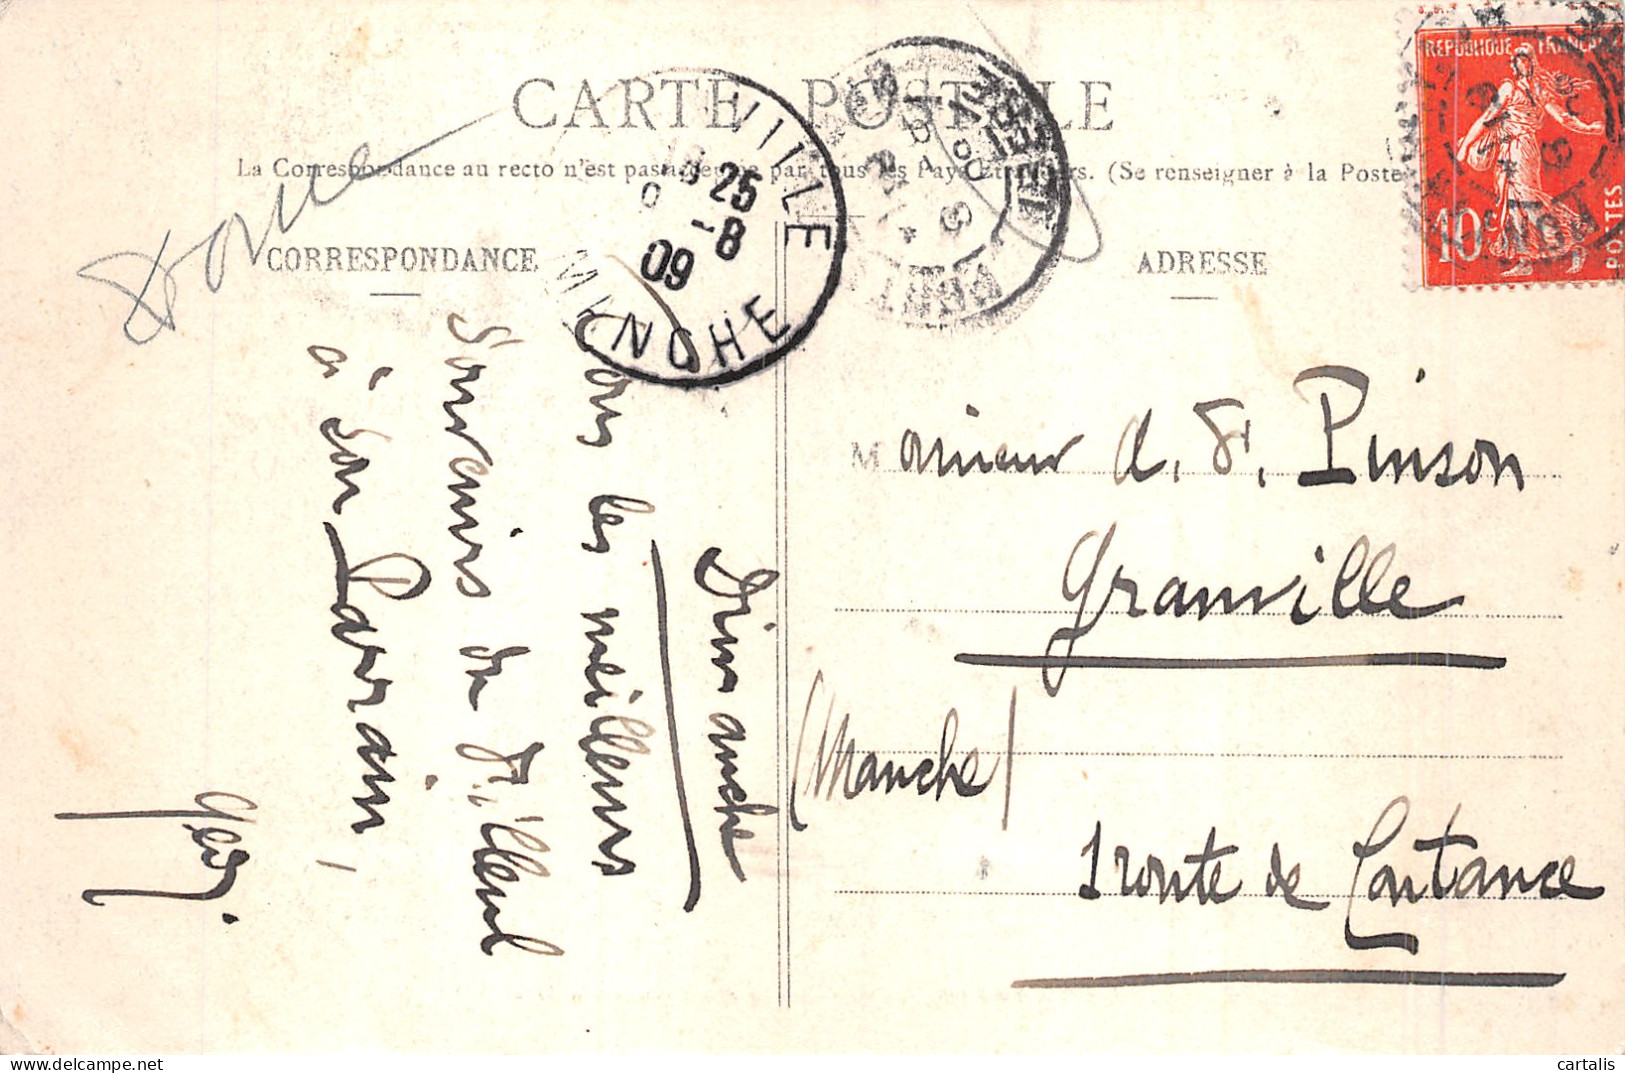 CARTE POSTALE
La Correspondance au recto n'est pas acceptée par tous les Pays Etrangers. (Se renseigner à la Poste
CORRESPONDANCE
ADRESSE
REPUBLIQUE FRANÇAISE
10c
POSTES
VILLE
25
-8
09
MANCHE
Dimanche
les meilleurs
Souvenirs du Filleul
à son Parrain,
M
onsieur A. F. Pinson
Granville
(Manche)
1 route de Coutance
cartalis